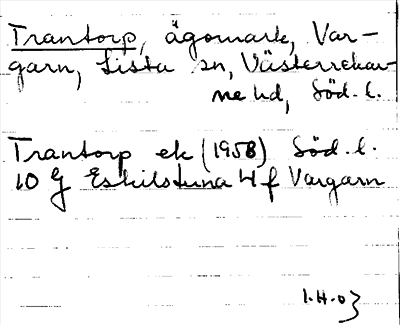 Trantorp, ägomark, Var-
garn, Lista sn, Västerrekar-
ne hd, Söd. l.
Trantorp ek (1958) Söd. l.
10 G Eskilstuna 4 f Vargarn